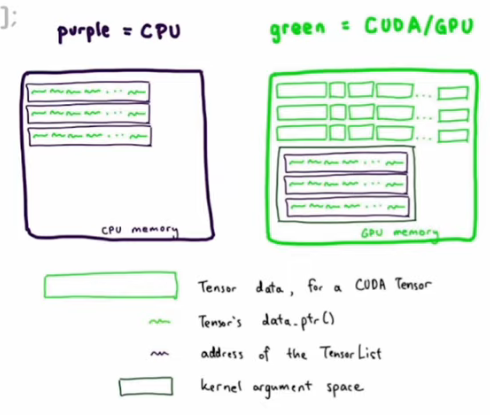 ];
purple = CPU
green = CUDA/GPU
CPU memory
GPU memory
Tensor data, for a CUDA Tensor
Tensor's data_ptr()
address of the TensorList
kernel argument space